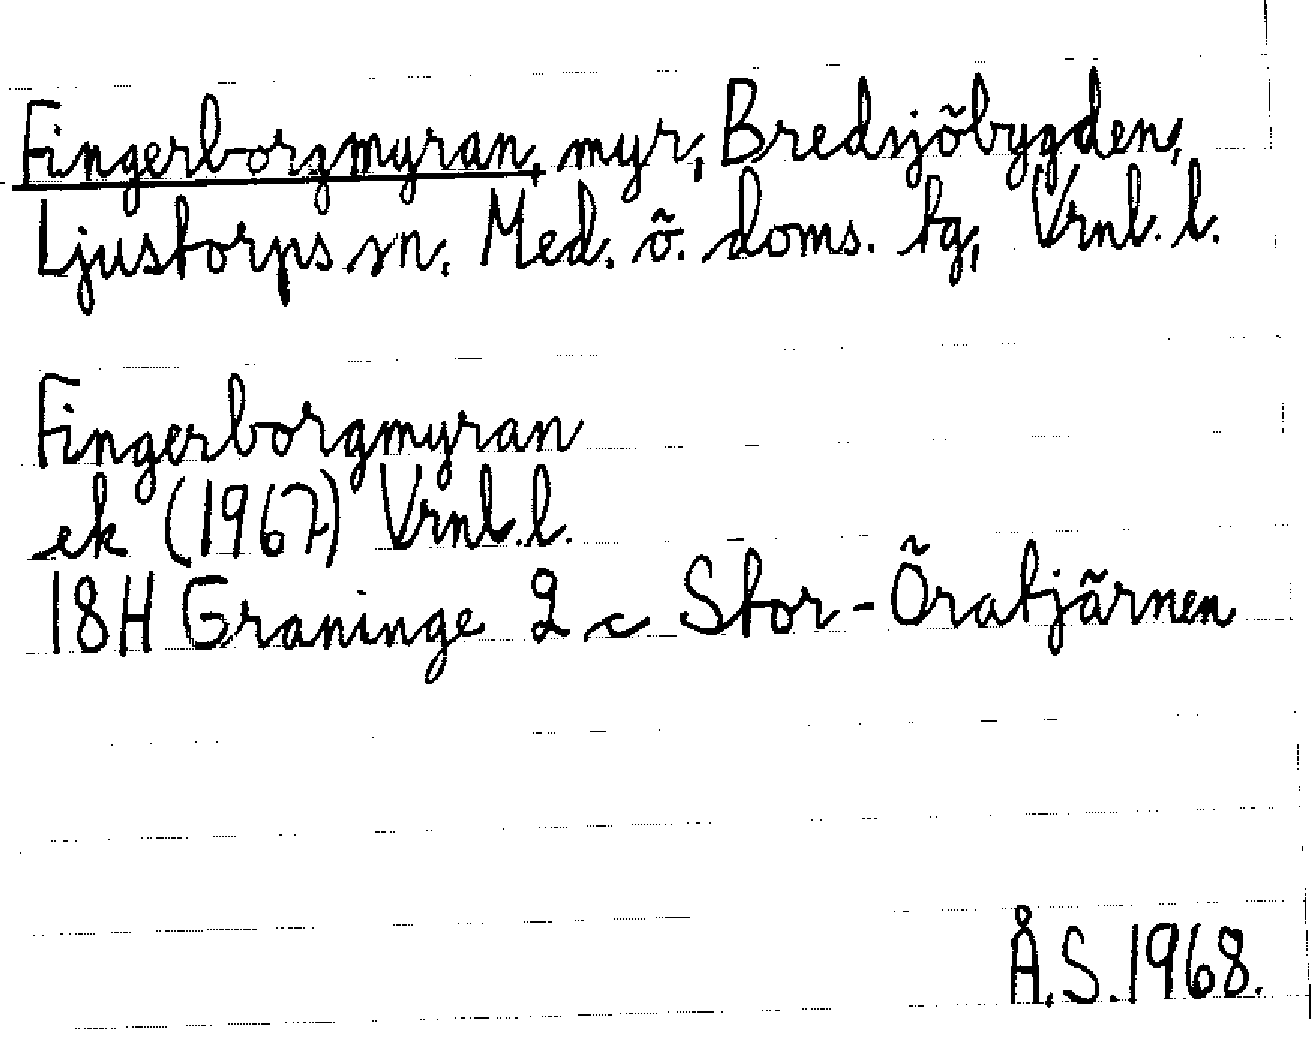 Fingerborgmyran, myr, Bredsjöbygden,
Ljustorps sn. Med. ö. doms. tg, Vrnl. l.
Fingerborgmyran
ek (1967) Vrnl. l.
18H Graninge 2 c Stor-Öratjärnen
Å.S. 1968.